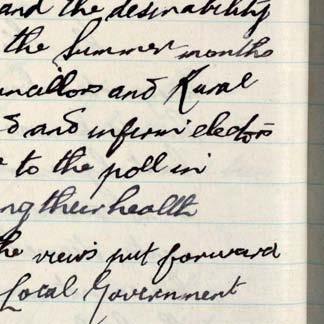 and the desirability
the Summer months
uncillors and Rural
d and infirm electors
to the poll in
ng their health
he views put forward
Local Government